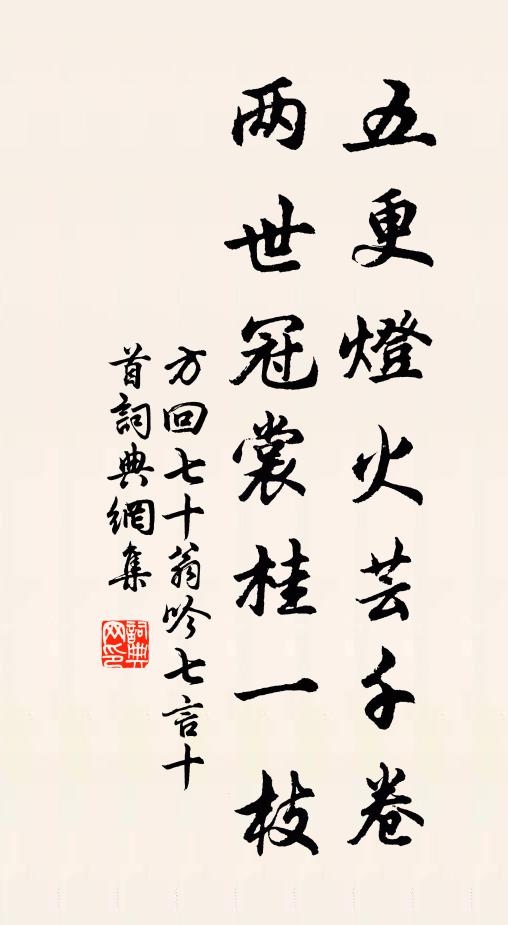 五更燈火芸千卷
两世冠裳桂一枝
方回七十翁吟七言十
首詞典網集
詞典
网印